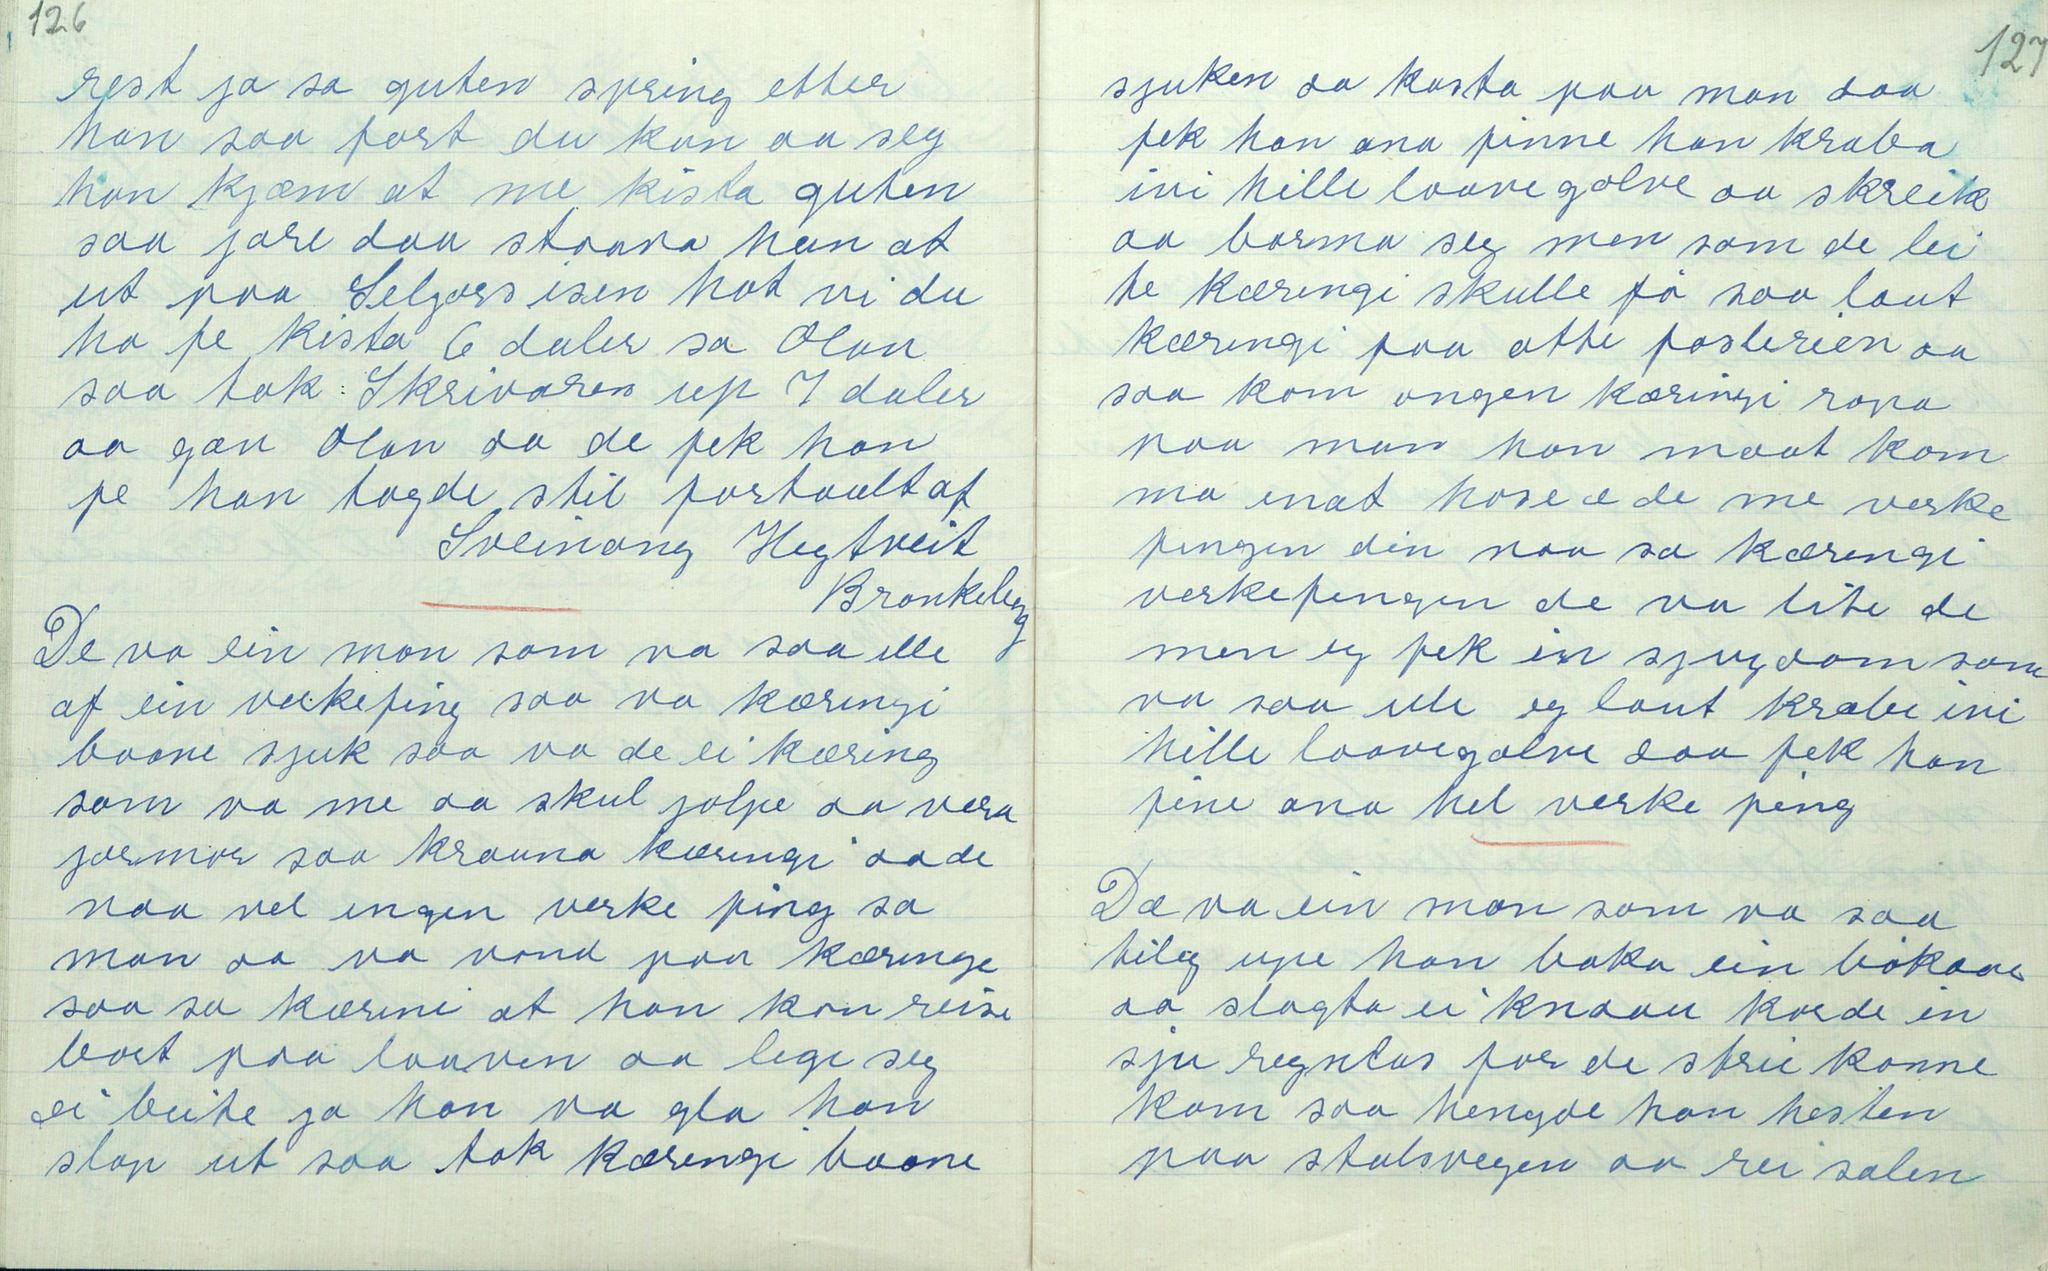 126
rest ja sa guten spring etter
han saa fort du kan aa seg
han kjæm at me kista guten
saa jore daa staava han at
ut paa Seljors isen hot vi du
ha fe kista 6 daler sa Olan
saa tok Skrivaren up 7 daler
aa gav Olan aa de fek han
fe han tagde stil fortaalt af
Sveinang Hegtveit
Brunkeberg
De va ein man som va saa ille
af ein verkefing saa va kæringi
baane sjuk saa va de ei kæring
som va me aa skul jolpe aa vera
jormor saa krauna kæringi aa de
naa vel ingen verke fing sa
man aa va vond paa kæringe
saa sa kærini at han kan reise
bort paa laaven aa lege seg
ei beite ja han va gla han
slap ut saa tok kæringi baane
127
sjuken aa kasta paa man daa
fek han ana finne han kraba
ivi hille laavegolve aa skreik
aa barma seg men som de lei
te kæringi skulle få saa laut
kæringi paa atte faslerien aa
saa kom ongen kæringi ropa
paa man han maat kom
ma inat hose æ de me verke
fingen din naa sa kæringi
verkefingen de va lite de
men eg fek ein sjugdom som
va saa ille eg laut krabe ivi
hille laavegolve daa fek han
fine ana hel verke fing
Dæ va ein man som va saa
tileg upe han baka ein båkaar
aa slagta ei knaau korde in
sju regnlas for de strie konne
kom saa hengde han hesten
paa stalsvegen aa rei salen